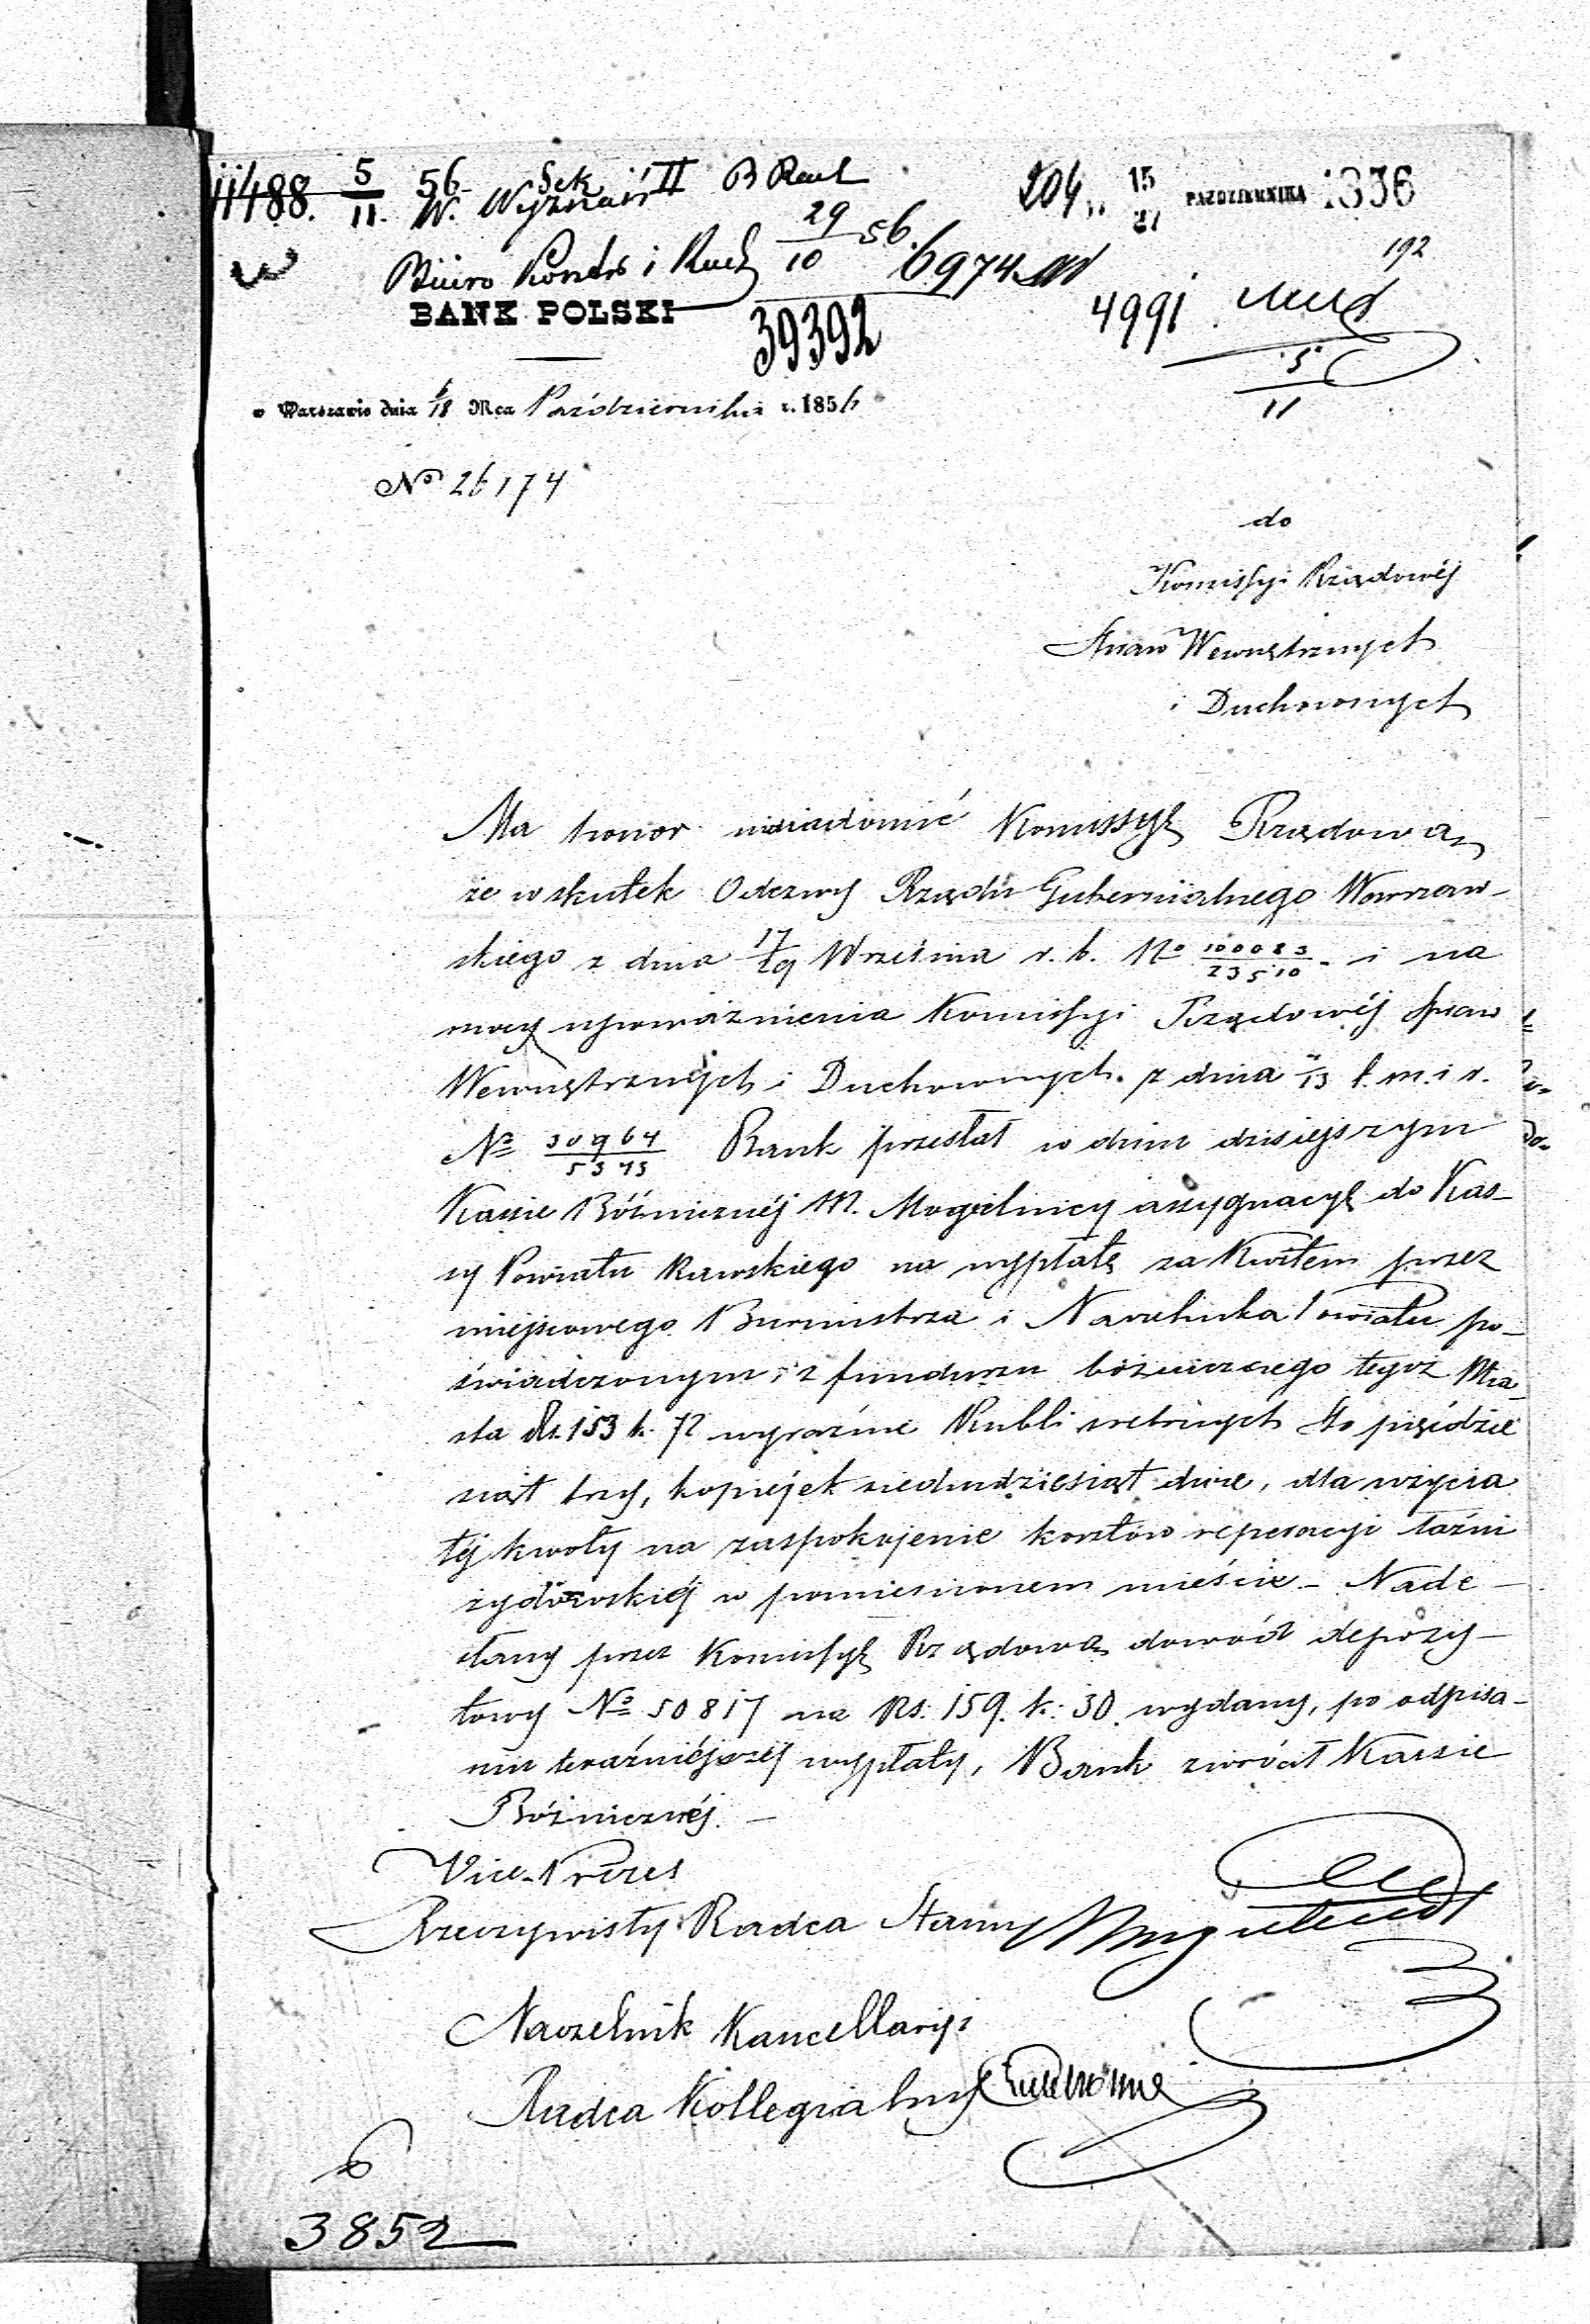 11488. 5/11 56. Sek II B Rach
W. Wyznań
204 15/27 PAZDZIERNIKA 1856
192
Biuro Kontr i Rach 29/10 56. 6974
BANK POLSKI
39392
4991
5/11
w Warszawie dnia 6/18 Mca Października r. 1856
No 26174
do
Komissyi Rządowéj
Spraw Wewnętrznych
i Duchownych
Ma honor uwiadomić Komissyę Rządową
że w skutek Odezwy Rządu Gubernialnego Warszaw-
skiego z dnia 17/29 Września r. b. No 100083/23510 - i na
mocy upoważnienia Komissyi Rządowéj Spraw
Wewnętrznych i Duchownych z dnia 1/13 b. m. i r.
No 30964/5373 Bank przesłał w dniu dzisiejszym
Kassie Bóżnicznéj M. Mogielnicy assygnacyę do Kas-
sy Powiatu Rawskiego na wypłatę za Kwitem przez
miejscowego Burmistrza i Naczelnika Powiatu po-
świadczonym, z funduszu bóżniczego tegoż Mia-
sta Rs. 153 k. 72 wyraźnie Rubli srebrnych Sto pięćdzie
siąt trzy, kopiejek siedmdziesiąt dwie, dla użycia
téj kwoty na zaspokojenie kosztów reperacyi łaźni
żydowskiéj w pomienionem mieście - Nade-
słany przez Komissyę Rządową dowód depozy-
towy No 50817 na Rs. 159. k. 30. wydany, po odpisa-
niu teraźniéjszéj wypłaty, Bank zwrócił Kassie
Bóżnicznéj. -
Vice-Prezes
Rzeczywisty Radca Stanu
Naczelnik Kancellaryi
Radca Kollegialny
6
3852